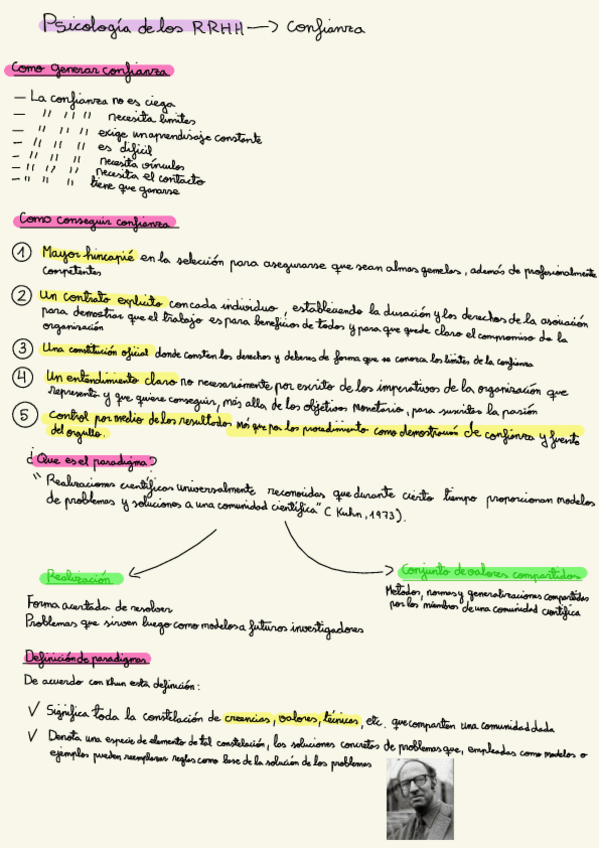 Psicología de los RRHH —> Confianza
Como generar confianza
— La confianza no es ciega
— " " " necesita limites
— " " " exige un aprendisaje constante
— " " " es dificil
— " " " necesita vínculos
— " " " necesita el contacto
— " " " tiene que ganarse
Como conseguir confianza
1 Mayor hincapié en la selección para asegurarse que sean almas gemelas, además de profesionalmente
competentes
2 Un contrato explicito con cada individuo, estableciendo la duración y los derechos de la asociación
para demostrar que el trabajo es para beneficios de todos y para que quede claro el compromiso de la
organización
3 Una constitución oficial donde consten los derechos y deberes de forma que se conozca los limites de la confianza
4 Un entendimiento claro no necesariamente por escrito de los imperativos de la organización que
representa y que quiere conseguir, más alla de los objetivos monetario, para suscitar la pasión
5 Control por medio de los resultados más que por los procedimiento como demostración de confianza y fuente
del orgullo.
¿Que es el paradigma?
"Realizaciones científicas universalmente reconocidas que durante cierto tiempo proporcionan modelos
de problemas y soluciones a una comunidad científica" (Kuhn, 1973).
Realización
Conjunto de valores compartidos
Forma acertada de resolver
Problemas que sirven luego como modelos a futuros investigadores
Métodos, normas y generalizaciones compartidas
por los miembros de una comunidad científica
Definición de paradigmas
De acuerdo con Khun esta definición:
√ Significa toda la constelación de creencias, valores, técnicas, etc. que comparten una comunidad dada
√ Denota una especie de elemento de tal constelación, las soluciones concretas de problemas que, empleadas como modelos o
ejemplos pueden reemplazar reglas como base de la solución de los problemas